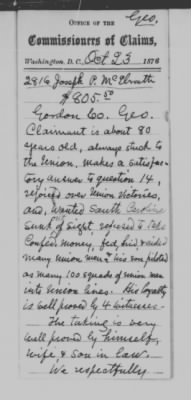 Geo.
OFFICE OF THE
Commissioners of Claims,
Washington, D. C., Oct 23 1876
2816 Joseph P. McElrath
$805.50
Gordon Co. Geo.
Claimant is about 80
years old, always stuck to
the Union, makes a satisfac-
tory answer to question 14,
rejoiced over Union victories,
and, wanted South Carolina
Sunk of sight, refused to take
Confed money, fed, hid, & aided
many Union men & his son piloted
as many 100 squads of Union men
into Union lines. His loyalty
is well proved by 4 witnesses-
The taking is very
well proved by himself,
wife & Son in law.
We respectfully